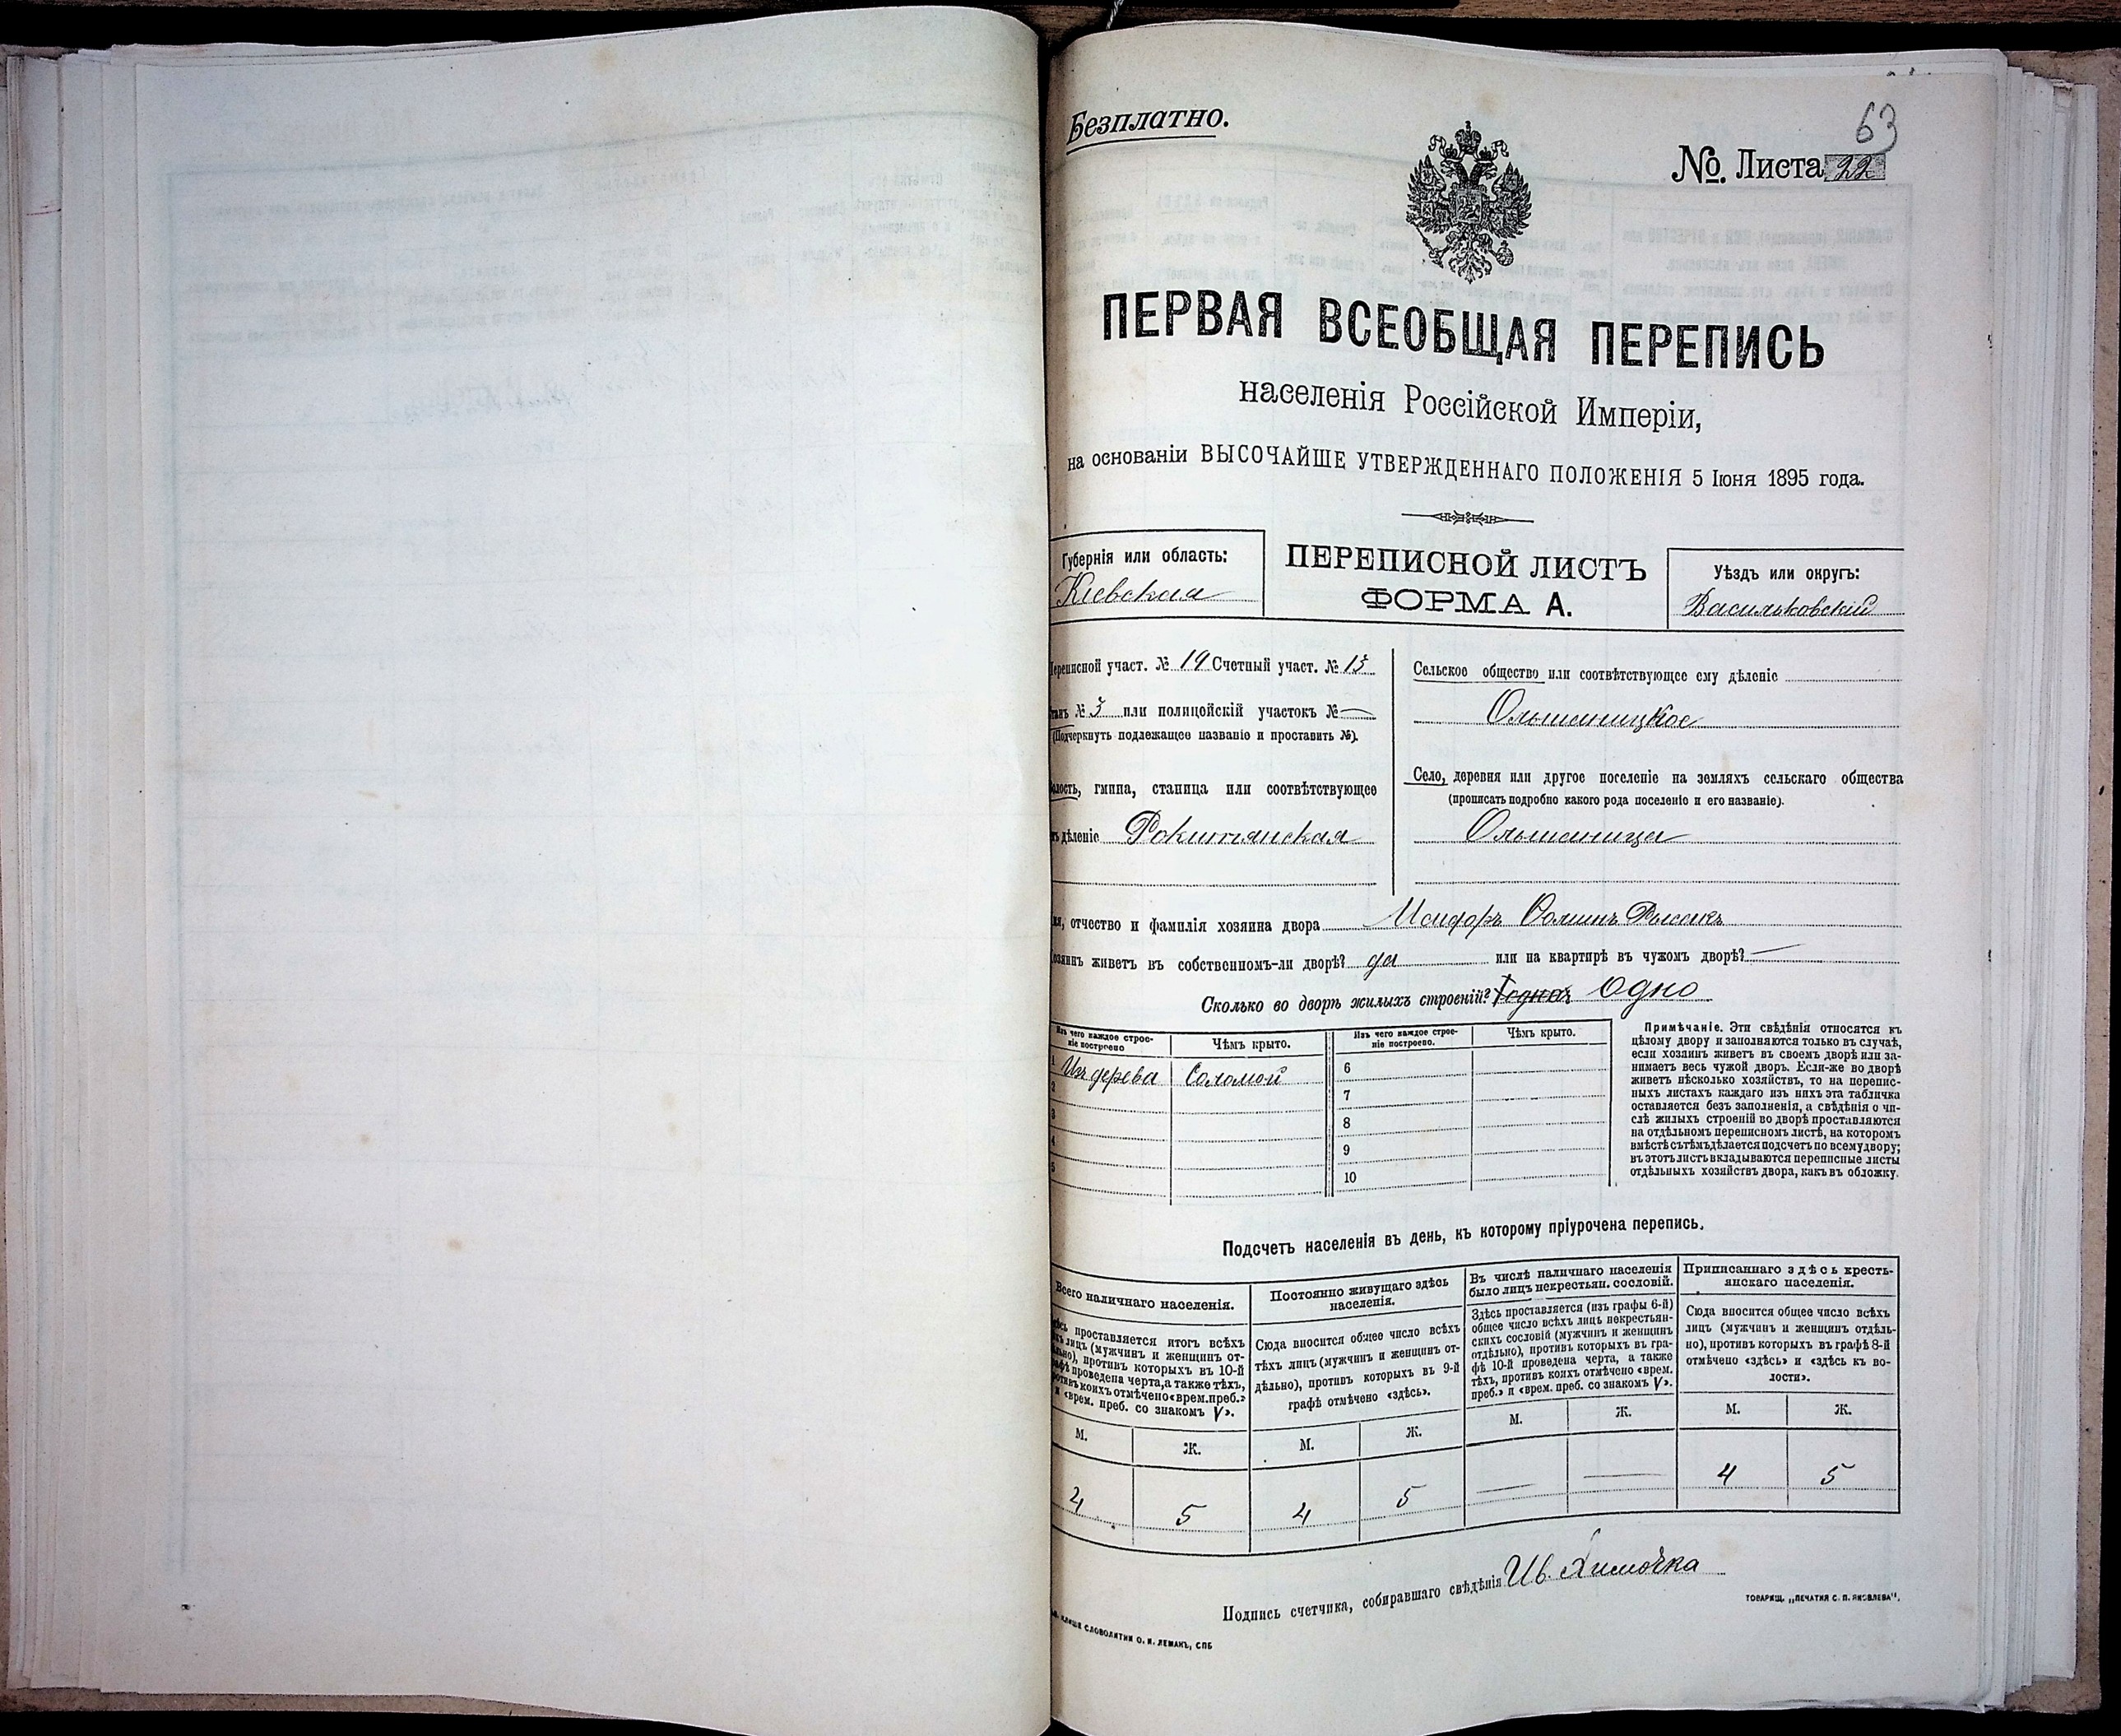 Безплатно.
63
№. Листа 22
ПЕРВАЯ ВСЕОБЩАЯ ПЕРЕПИСЬ
населенія Россійской Имперіи,
на основаніи ВЫСОЧАЙШЕ УТВЕРЖДЕННАГО ПОЛОЖЕНІЯ 5 Іюня 1895 года.
Губернія или область:
Кіевская
ПЕРЕПИСНОЙ ЛИСТЪ
ФОРМА А.
Уѣздъ или округъ:
Васильковскій
Переписной участ. № 19 Счетный участ. № 13
Станъ № 3 или полицейскій участокъ № —
(Подчеркнуть подлежащее названіе и проставить №).
Волость, гмина, станица или соотвѣтствующее
ъ дѣленіе Рокитянская
Сельское общество или соотвѣтствующее ему дѣленіе
Ольшаницкое
Село, деревня или другое поселеніе на земляхъ сельскаго общества
(прописать подробно какого рода поселеніе и его названіе).
Ольшаница
Имя, отчество и фамилія хозяина двора Исидоръ
Хозяинъ живетъ въ собственномъ-ли дворѣ? да или на квартирѣ въ чужомъ дворѣ? —
Сколько во дворѣ жилыхъ строеній? Одно
Изъ чего каждое строе-
ніе построено
Чѣмъ крыто.
Изъ чего каждое строе-
ніе построено.
Чѣмъ крыто.
1 Изъ дерева Соломой
2
3
4
5
6
7
8
9
10
Примѣчаніе. Эти свѣдѣнія относятся къ
цѣлому двору и заполняются только въ случаѣ,
если хозяинъ живетъ въ своемъ дворѣ или за-
нимаетъ весь чужой дворъ. Если-же во дворѣ
живетъ нѣсколько хозяйствъ, то на перепис-
ныхъ листахъ каждаго изъ нихъ эта табличка
оставляется безъ заполненія, а свѣдѣнія о чи-
слѣ жилыхъ строеній во дворѣ проставляются
на отдѣльномъ переписномъ листѣ, на которомъ
вмѣстѣ съ тѣмъ дѣлается подсчетъ по всему двору;
въ этотъ листъ вкладываются переписные листы
отдѣльныхъ хозяйствъ двора, какъ въ обложку.
Подсчетъ населенія въ день, къ которому пріурочена перепись.
Всего наличнаго населенія.
Здѣсь проставляется итогъ всѣхъ
лицъ (мужчинъ и женщинъ от-
дѣльно), противъ которыхъ въ 10-й
графѣ проведена черта, а также тѣхъ,
противъ коихъ отмѣчено «врем. преб.»
и «врем. преб. со знакомъ V».
Постоянно живущаго здѣсь
населенія.
Сюда вносится общее число всѣхъ
тѣхъ лицъ (мужчинъ и женщинъ от-
дѣльно), противъ которыхъ въ 9-й
графѣ отмѣчено «здѣсь».
Въ числѣ наличнаго населенія
было лицъ некрестьян. сословій.
Здѣсь проставляется (изъ графы 6-й)
общее число всѣхъ лицъ некрестьян-
скихъ сословій (мужчинъ и женщинъ
отдѣльно), противъ которыхъ въ гра-
фѣ 10-й проведена черта, а также
тѣхъ, противъ коихъ отмѣчено «врем.
преб.» и «врем. преб. со знакомъ V».
Приписаннаго здѣсь кресть-
янскаго населенія.
Сюда вносится общее число всѣхъ
лицъ (мужчинъ и женщинъ отдѣль-
но), противъ которыхъ въ графѣ 8-й
отмѣчено «здѣсь» и «здѣсь къ во-
лости».
М. Ж. М. Ж. М. Ж. М. Ж.
4 5 4 5 — — 4 5
Подпись счетчика, собиравшаго свѣдѣнія Ив. Химочка
СЛОВОЛИТНИ О. И. ЛЕМАНЪ, СПБ
ТОВАРИЩ. „ПЕЧАТНЯ С. П. ЯКОВЛЕВА".